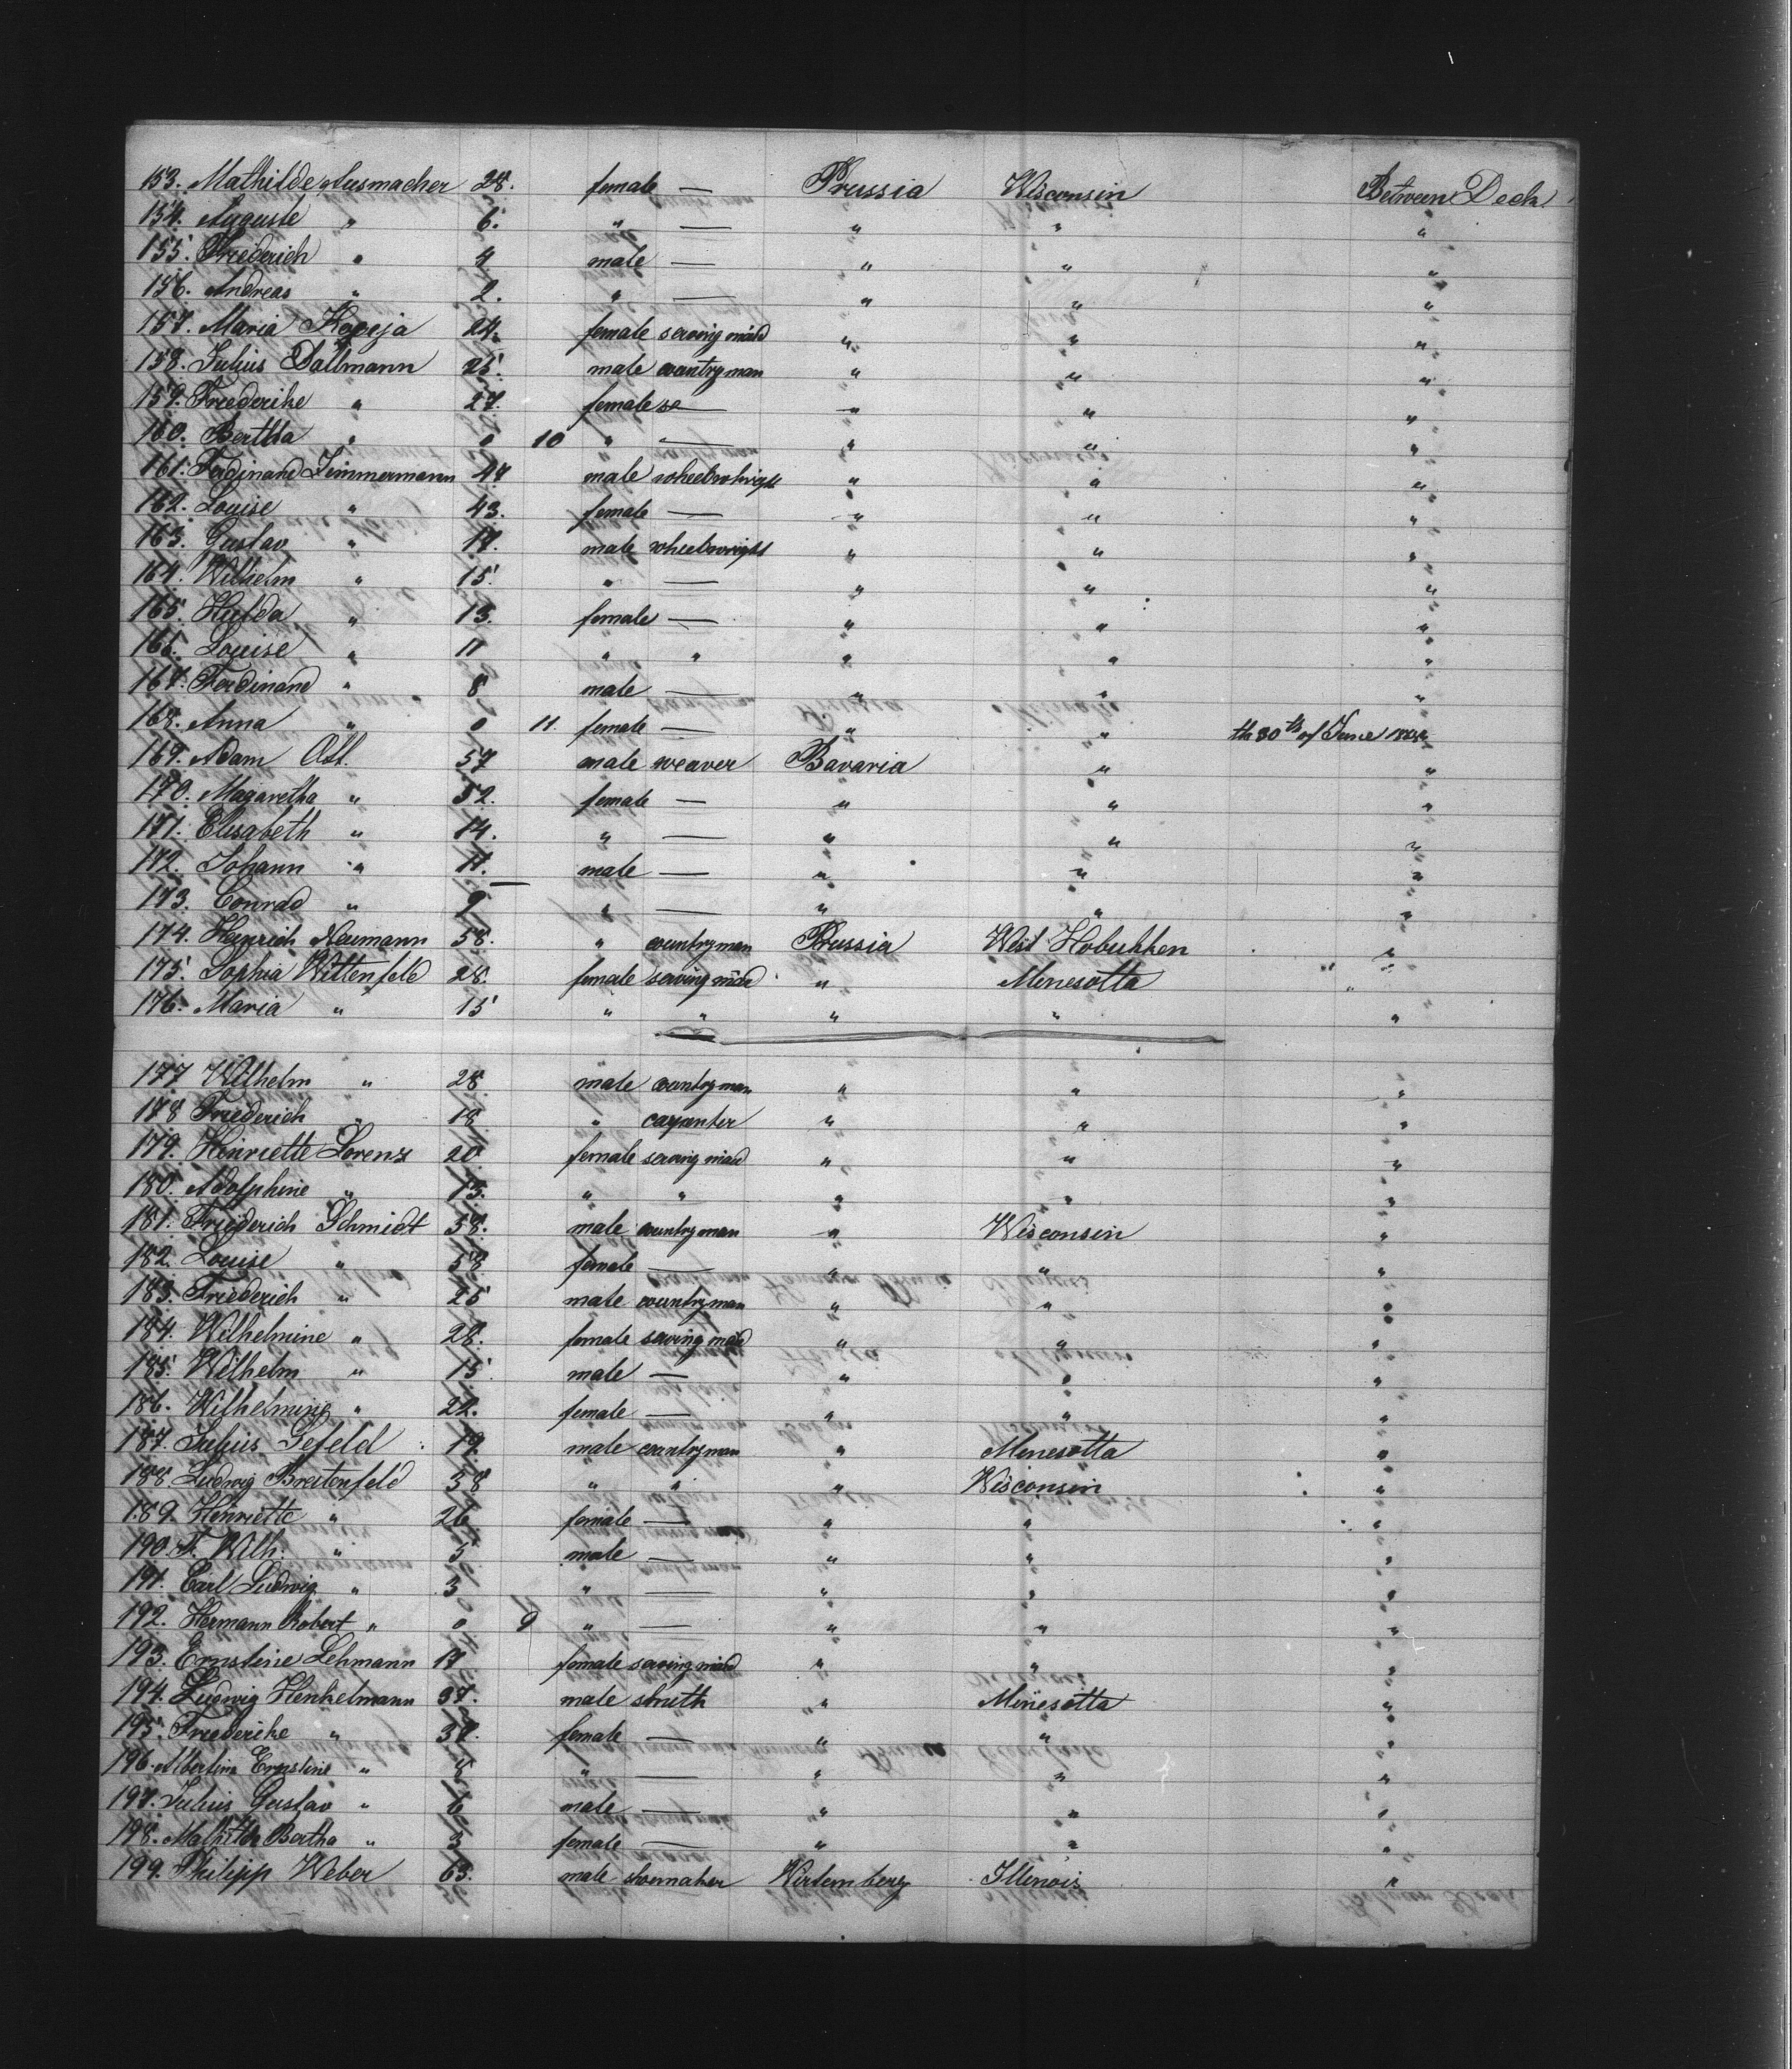 153. Mathilde Ausmacher 28. female — Prussia Wisconsin Between Deck
154. Auguste " 6. " — " " "
155. Friederich " 4 male — " " "
156. Andreas " 2. " — " " "
157. Maria Kopeja 24. female serving maid " " "
158. Julius Dallmann 25. male countryman " " "
159. Friederike " 27. female se— " " "
160. Bertha " 0 10 " — " " "
161. Ferdinand Zimmermann 47 male wheelwhright " " "
162. Louise " 43. female — " " "
163. Gustav " 17. male wheelwright " " "
164. Wilhelm " 15. " — " " "
165. Hulda " 13. female — " " "
166. Louise " 11 " " " " "
167. Ferdinand " 8 male — " " "
168. Anna " 0 11. female — " " th 30th of June
169. Adam Ott. 57 male weaver Bavaria " "
170. Magaretha " 52. female — " " "
171. Elisabeth " 14. " — " " "
172. Johann " 11. male — " " "
173. Conrad " 9 " — " " "
174. Heinrich Neumann 58. " countryman Prussia West Hobukken "
175. Sophia Wittenfeld 28. female serving maid " Menesotta "
176. Maria " 15 " " " " "
177 Wilhelm " 28 male countryman " " "
178 Friederich " 18. " carpenter " " "
179. Henriette Lorenz 20 female serving maid " " "
180. Adolphine " 13. " " " " "
181. Friederich Schmidt 58. male countryman " Wisconsin "
182. Louise " 58 female — " " "
183. Friederich " 25 male countryman " " "
184. Wilhelmine " 28. female serving maid " " "
185. Wilhelm " 15. male — " " "
186. Wilhelmine " 22. female — " " "
187. Julius Gefeld 19. male countryman " Menesotta "
188. Ludwig Breitenfeld 38 " " " Wisconsin "
189. Henriette " 26 female — " " "
190. F. Wilh. " 5 male — " " "
191. Carl Ludwig " 3 " — " " "
192. Hermann Robert " 0 9 " — " " "
193. Ernstine Lehmann 17 female serving maid " " "
194. Ludwig Henkelmann 37. male smith " Minesotta "
195. Friederike " 37. female — " " "
196. Albertine Ernstine " 8 " — " " "
197. Julius Gustav " 6 male — " " "
198. Mathilde Bertha " 3 female — " " "
199. Philipp Weber 63. male shoemaker Wirtemberg Illinois "